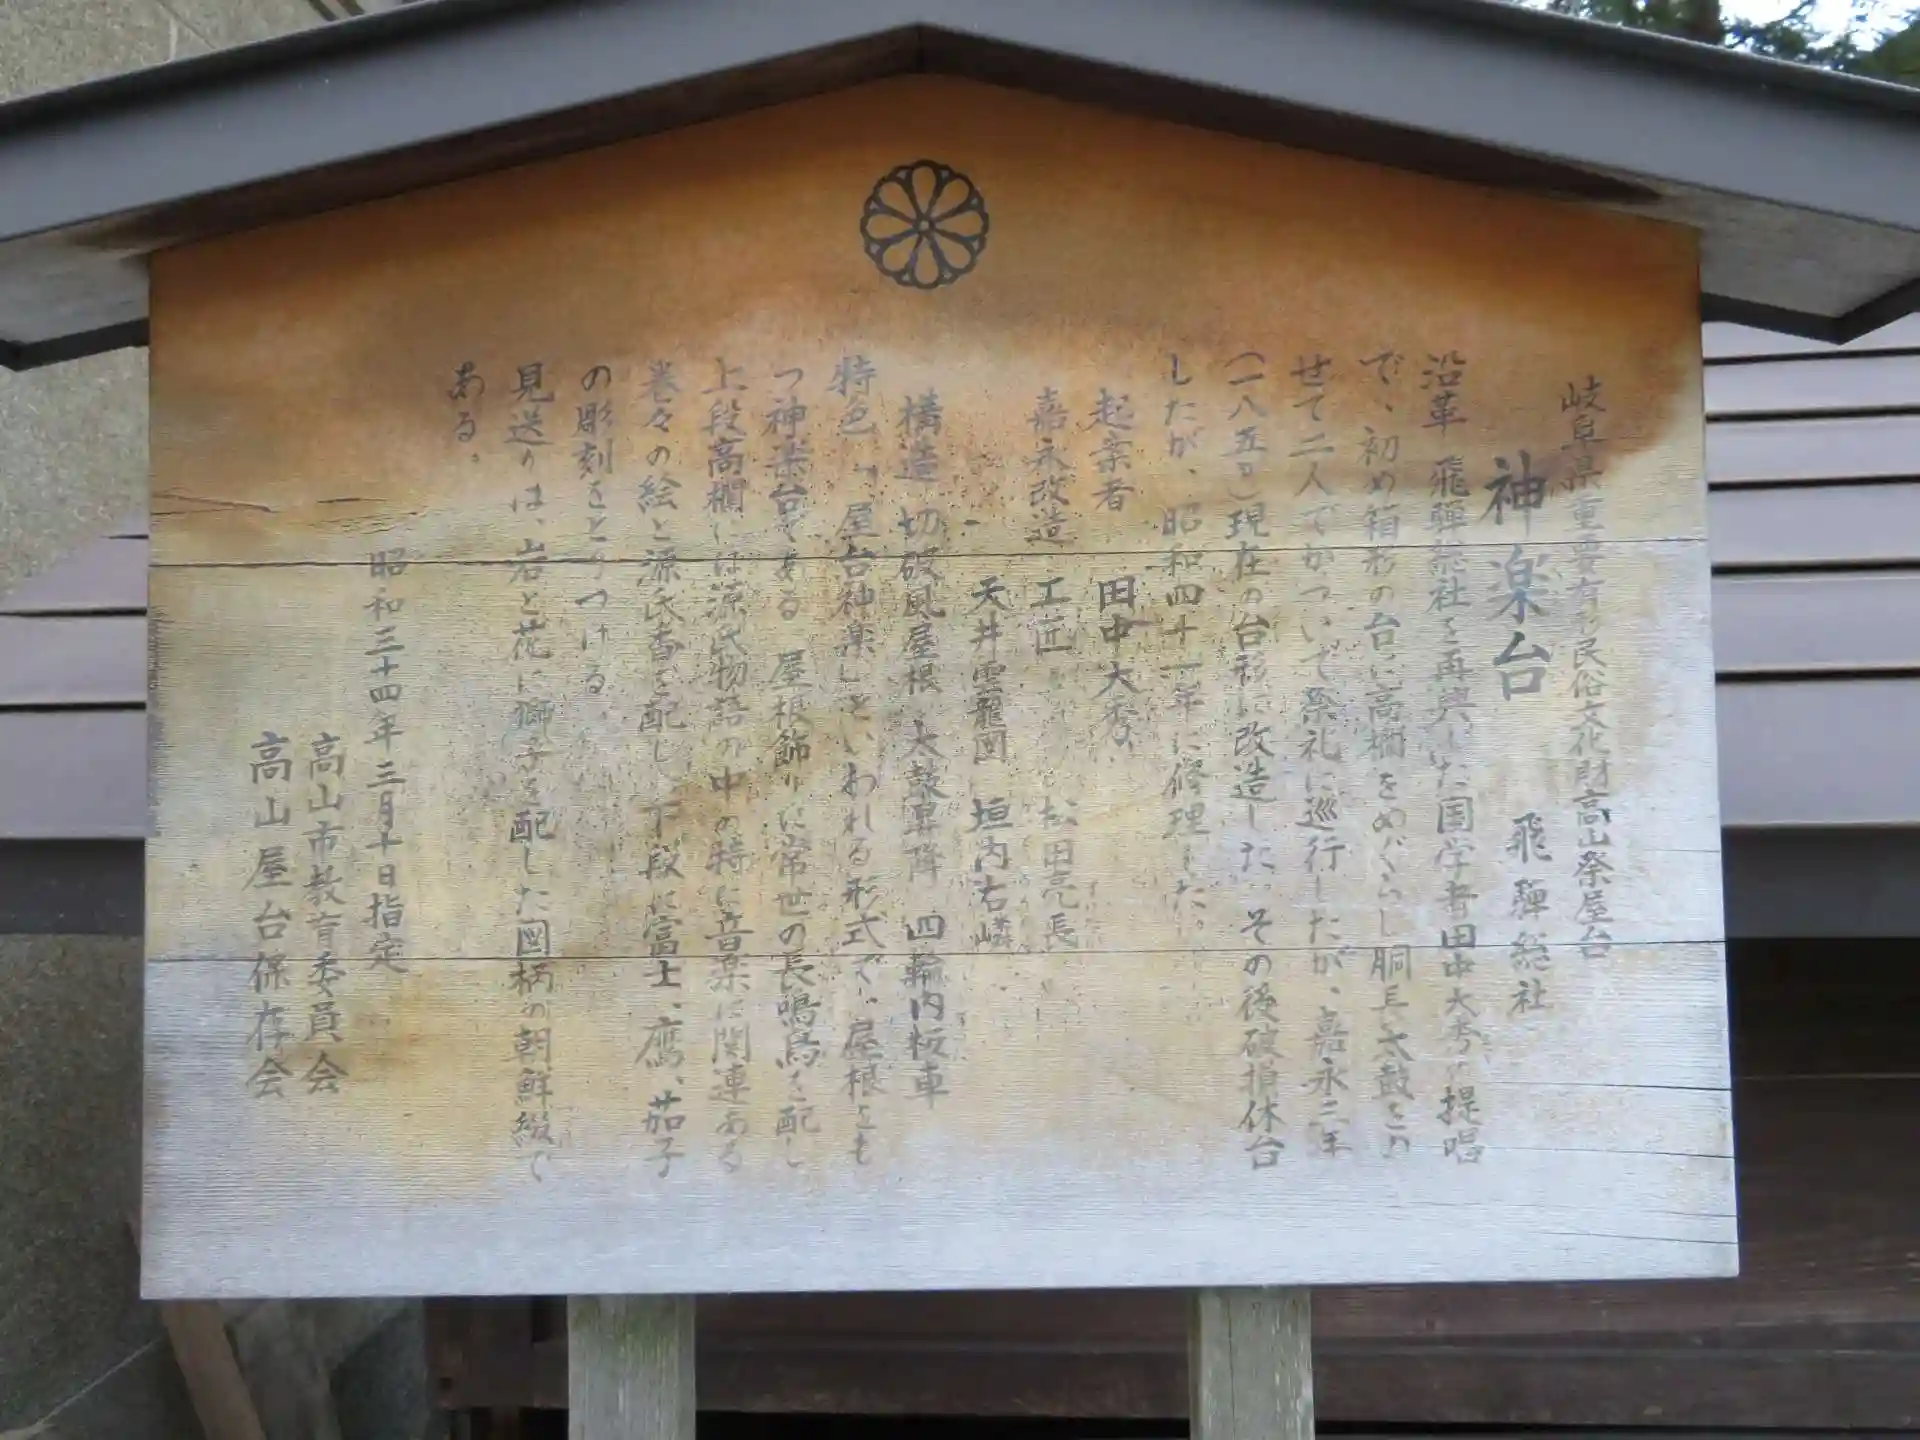 岐阜県重要有形民俗文化財高山祭屋台
神楽台 飛騨総社
沿革 飛騨総社を再興した国学者田中大秀の提唱
で、初め箱形の台に高欄をめぐらし胴長太鼓をの
せて二人でかついで祭礼に巡行したが、嘉永三年
(一八五〇)現在の台形に改造した。その後破損休台
したが、昭和四十一年に修理した。
起案者 田中大秀
嘉永改造 工匠 松田亮長
天井雲龍図 垣内右嶙
構造 切破風屋根 太鼓昇降 四輪内板車
特色 「屋台神楽」といわれる形式で、屋根をも
つ神楽台である 屋根飾りに常世の長鳴鳥を配し
上段高欄には源氏物語の中の特に音楽に関連ある
巻々の絵と源氏香を配し、下段に富士、鷹、茄子
の彫刻をとりつける
見送りは、岩と花に獅子を配した図柄の朝鮮綴で
ある。
昭和三十四年三月十日指定
高山市教育委員会
高山屋台保存会